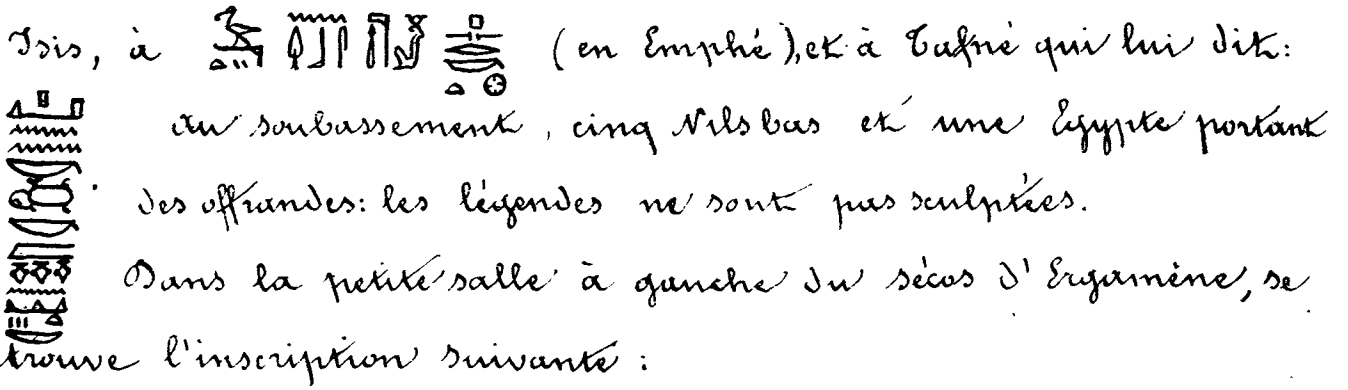 Isis, à (en Emphé), et à Tafné qui lui dit:
au soubassement, cinq Nils bas et une Egypte portant
des offrandes: les légendes ne sont pas sculptées.
Dans la petite salle à gauche du sécos d'Ergamène, se
trouve l'inscription suivante: